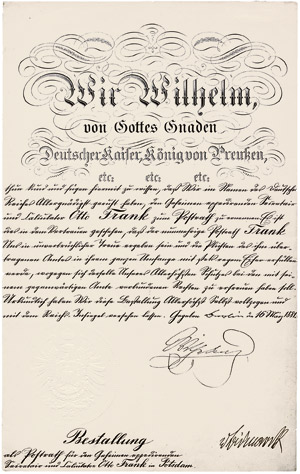 Wir Wilhelm,
von Gottes Gnaden
Deutscher Kaiser, König von Preußen,
etc: etc: etc:
thun kund und fügen hiermit zu wissen, daß Wir im Namen des Deutschen
Reichs Allergnädigst geruht haben, den Geheimen expedirenden Secretair
und Calculator Otto Frank zum Postrath zu ernennen. Es ist
das in dem Vertrauen geschehen, daß der nunmehrige Postrath Frank
Uns in unverbrüchlicher Treue ergeben sein und die Pflichten des ihm über-
tragenen Amtes in ihrem ganzen Umfange mit stets regem Eifer erfüllen
werde, wogegen sich derselbe Unseres Allerhöchsten Schutzes bei den mit sei-
nem gegenwärtigen Amte verbundenen Rechten zu erfreuen haben soll.
Urkundlich haben Wir diese Bestallung Allerhöchst Selbst vollzogen und
mit dem Reichs-Insiegel versehen lassen. Gegeben Berlin, den 16 März 1881.
Wilhelm
Bestallung
als Postrath für den Geheimen expedirenden
Secretair und Calculator Otto Frank in Potsdam.
v Bismarck